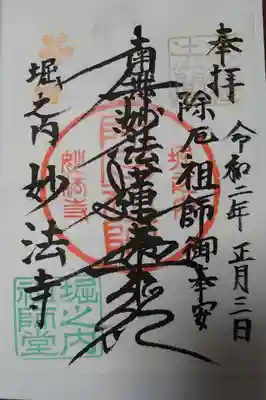 奉拝
除厄祖師御奉安
令和二年 正月三日
南無妙法蓮華経
堀之内 妙法寺
堀之内
妙法寺
堀之内
祖師堂